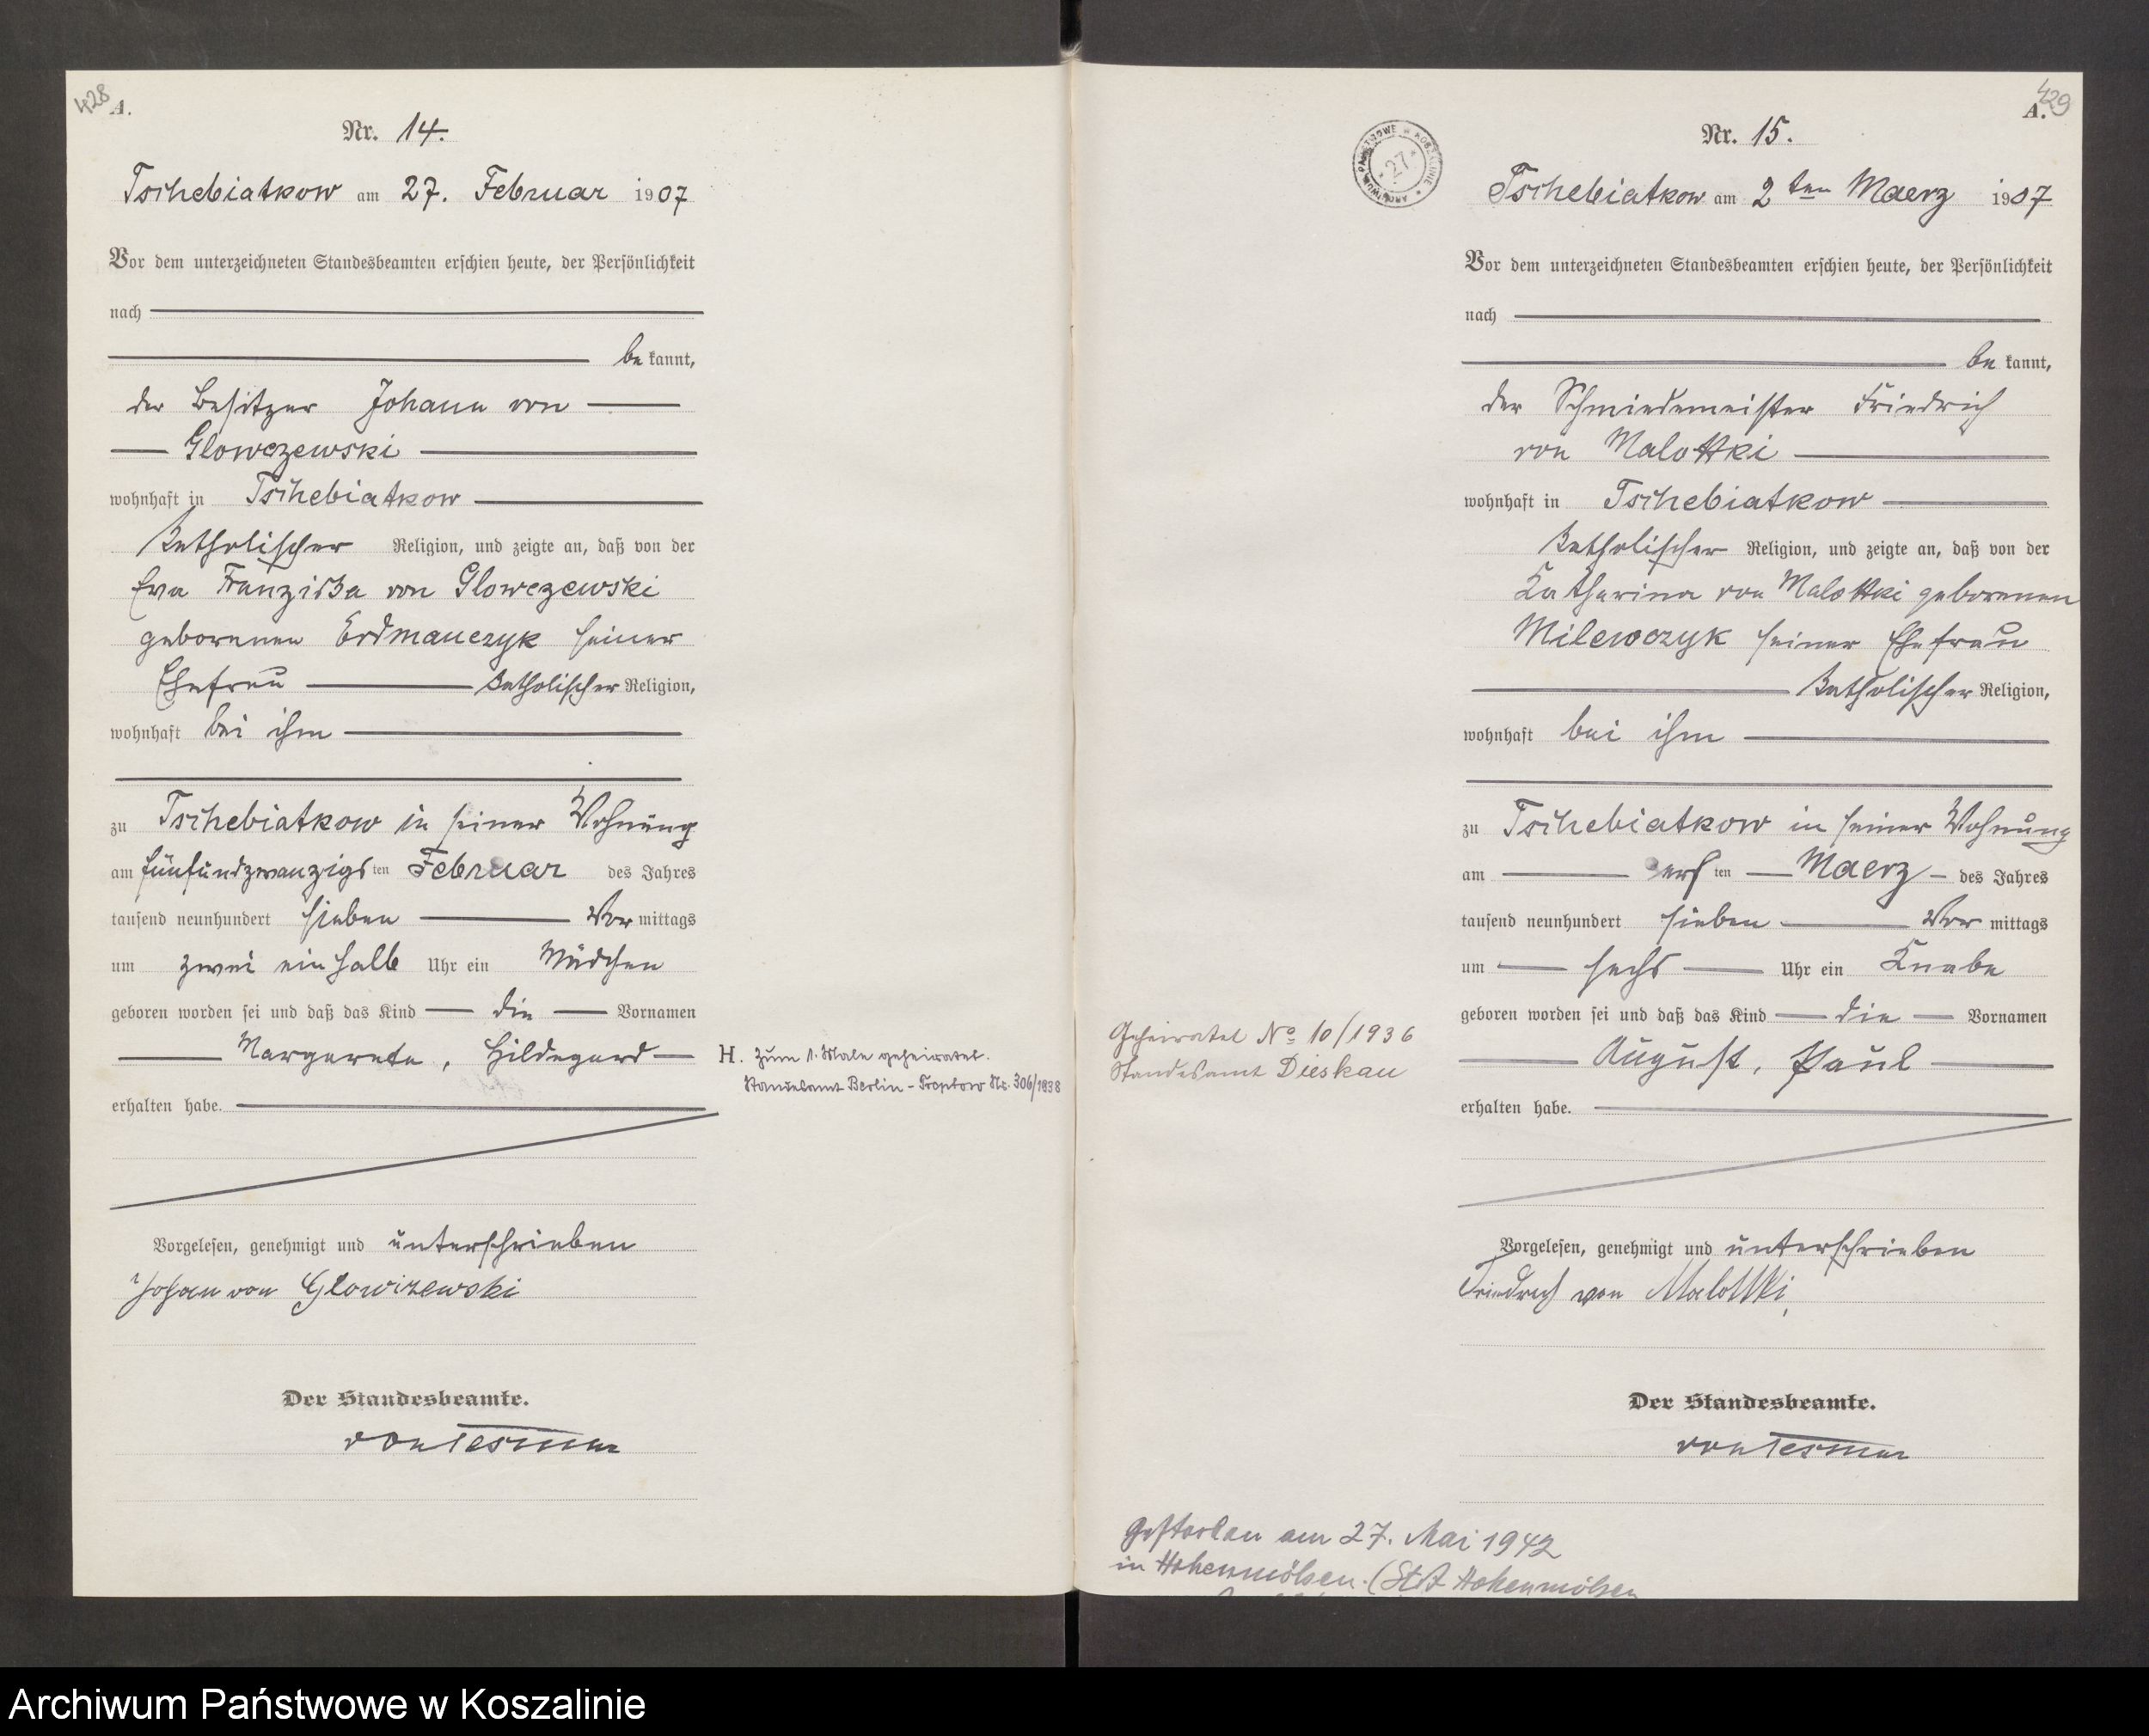 428
A.
Nr. 14.
Tschebiatkow am 27. Februar 1907
Vor dem unterzeichneten Standesbeamten erschien heute, der Persönlichkeit
nach
be kannt,
der Besitzer Johann von
Glowczewski
wohnhaft in Tschebiatkow
katholischer Religion, und zeigte an, daß von der
Eva Franziska von Glowczewski
geborenen Erdmanczyk seiner
Ehefrau katholischer Religion,
wohnhaft bei ihm
zu Tschebiatkow in seiner Wohnung
am fünfundzwanzigsten Februar des Jahres
tausend neunhundert sieben Vormittags
um zwei einhalb Uhr ein Mädchen
geboren worden sei und daß das Kind die Vornamen
Margarete, Hildegard
erhalten habe.
H. Zum 1. Male geheiratet.
Standesamt Berlin - Treptow Nr. 306/1938
Vorgelesen, genehmigt und unterschrieben
Johann von Glowczewski
Der Standesbeamte.
429
A.
ARCHIWUM PAŃSTWOWE W KOSZALINIE
27
Nr. 15.
Tschebiatkow am 2ten Maerz 1907
Vor dem unterzeichneten Standesbeamten erschien heute, der Persönlichkeit
nach
be kannt,
der Schmiedemeister Friedrich
von Malottki
wohnhaft in Tschebiatkow
katholischer Religion, und zeigte an, daß von der
Katharina von Malottki geborenen
Milewczyk seiner Ehefrau
katholischer Religion,
wohnhaft bei ihm
zu Tschebiatkow in seiner Wohnung
am ersten Maerz des Jahres
tausend neunhundert sieben Vormittags
um sechs Uhr ein Knabe
geboren worden sei und daß das Kind die Vornamen
August, Paul
erhalten habe.
Geheiratet No 10/1936
Standesamt Dieskau
Vorgelesen, genehmigt und unterschrieben
Friedrich von Malottki
Der Standesbeamte.
Gestorben am 27. Mai 1942
in Hohenmölsen. (StA Hohenmölsen
Archiwum Państwowe w Koszalinie